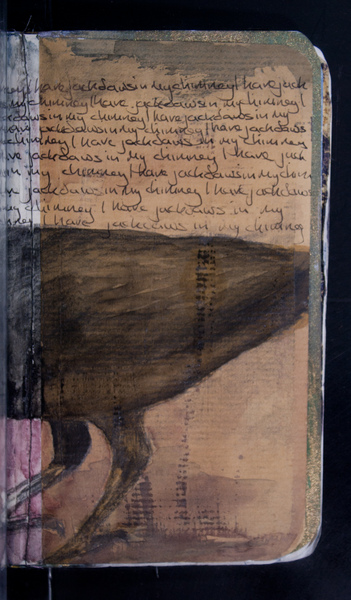 I have jackdaws in my chimney I have jack
my chimney I have jackdaws in my chimney I
daws in my chimney I have jackdaws in my
have jackdaws in my chimney I have jackdaws
chimney I have jackdaws in my chimney
have jackdaws in my chimney I have jack
in my chimney I have jackdaws in my chim
jackdaws in my chimney I have jackdaws
my chimney I have jackdaws in my
I have jackdaws in my chimney